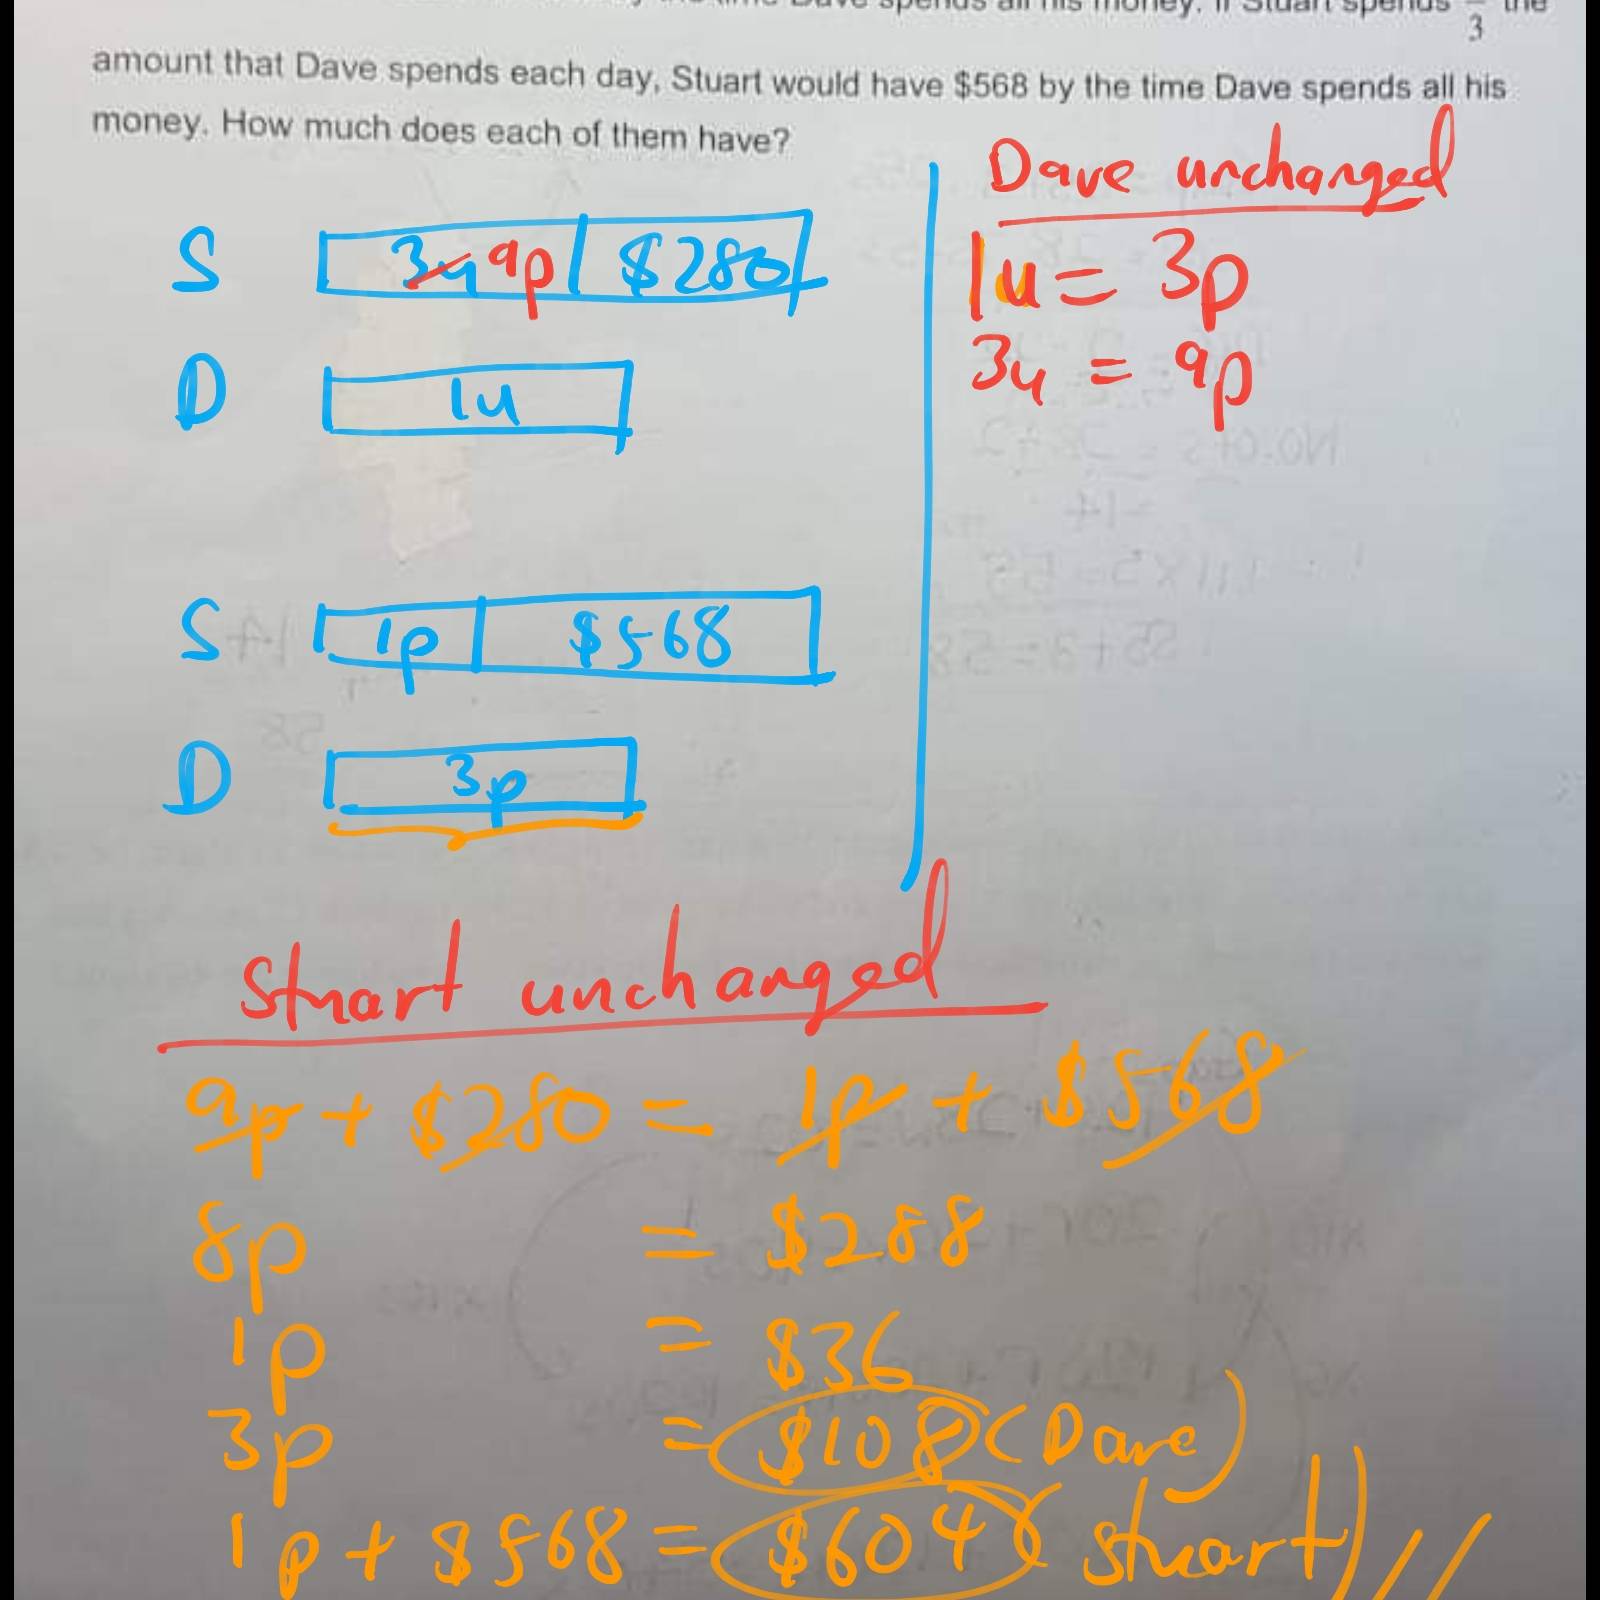 time Dave spends all his money. If Stuart spends 3 the
amount that Dave spends each day, Stuart would have $568 by the time Dave spends all his
money. How much does each of them have?
Dave unchanged
S 3u 9p $280
1u = 3p
3u = 9p
D 1u
S 1p $568
D 3p
Stuart unchanged
9p + $280 = 1p + $568
8p = $288
1p = $36
3p = $108 (Dave)
1p + $568 = $604 (Stuart)